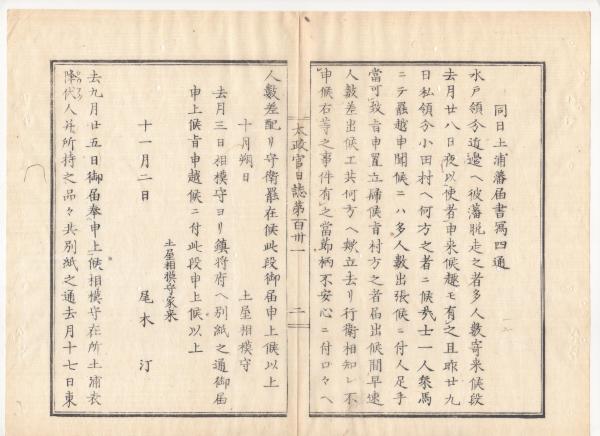 同日土浦藩届書寫四通
水戸領分近邊ヘ彼藩脱走之者多人數寄来候段
去月廿八日夜以使者申来候趣モ有之且昨廿九
日私領分小田村ヘ何方之者ニ候哉士一人乗馬
ニテ罷越申聞候ニハ多人數出張候ニ付人足手
當可致旨申置立歸候旨村方之者届出候間早速
人數差出候エ共何方ヘ歟立去リ行衛相知レ不
申候右等之事件有之當節柄不安心ニ付口々ヘ
太政官日誌第百卅一 二
人數差配リ守衛罷在候此段御届申上候以上
十月朔日 土屋相模守
去月三日相模守ヨリ鎮将府ヘ別紙之通御届
申上候旨申越候ニ付此段申上候以上
土屋相模守家来
十一月二日 尾木 汀
去九月廿五日御届奉申上候相模守在所土浦表
降伏人并所持之品々共別紙之通去月十七日東